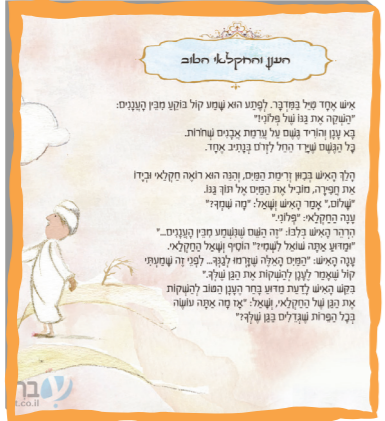 הענן והחקלאי הטוב
אִישׁ אֶחָד טִיֵּל בַּמִּדְבָּר. לְפֶתַע הוּא שָׁמַע קוֹל בּוֹקֵעַ מִבֵּין הָעֲנָנִים:
"הַשְׁקֵה אֶת גַּנּוֹ שֶׁל פְּלוֹנִי!"
בָּא עָנָן וְהוֹרִיד גֶּשֶׁם עַל עֲרֵמַת אֲבָנִים שְׁחֹרוֹת.
כָּל הַגֶּשֶׁם שֶׁיָּרַד הֵחֵל לִזְרֹם בְּנָתִיב אֶחָד.
הָלַךְ הָאִישׁ בְּכִוּוּן זְרִימַת הַמַּיִם, וְהִנֵּה הוּא רוֹאֶה חַקְלַאי וּבְיָדוֹ
אֵת חֲפִירָה, מוֹבִיל אֶת הַמַּיִם אֶל תּוֹךְ גַּנּוֹ.
"שָׁלוֹם," אָמַר הָאִישׁ וְשָׁאַל: "מָה שִׁמְךָ?"
עָנָה הַחַקְלַאי: "פְּלוֹנִי."
הִרְהֵר הָאִישׁ בְּלִבּוֹ: "זֶה הַשֵּׁם שֶׁנִּשְׁמַע מִבֵּין הָעֲנָנִים..."
"וּמַדּוּעַ אַתָּה שׁוֹאֵל לִשְׁמִי?" הוֹסִיף וְשָׁאַל הַחַקְלַאי.
עָנָה הָאִישׁ: "הַמַּיִם הָאֵלֶּה שֶׁזָּרְמוּ לְגַנְּךָ... לִפְנֵי זֶה שָׁמַעְתִּי
קוֹל שֶׁאָמַר לֶעָנָן לְהַשְׁקוֹת אֶת הַגַּן שֶׁלְּךָ."
בִּקֵּשׁ הָאִישׁ לָדַעַת מַדּוּעַ בָּחַר הֶעָנָן הַטּוֹב לְהַשְׁקוֹת
אֶת הַגַּן שֶׁל הַחַקְלַאי, וְשָׁאַל: "אָז מָה אַתָּה עוֹשֶׂה
בְּכָל הַפֵּרוֹת שֶׁגְּדֵלִים בַּגַּן שֶׁלְּךָ?"
t.co.il